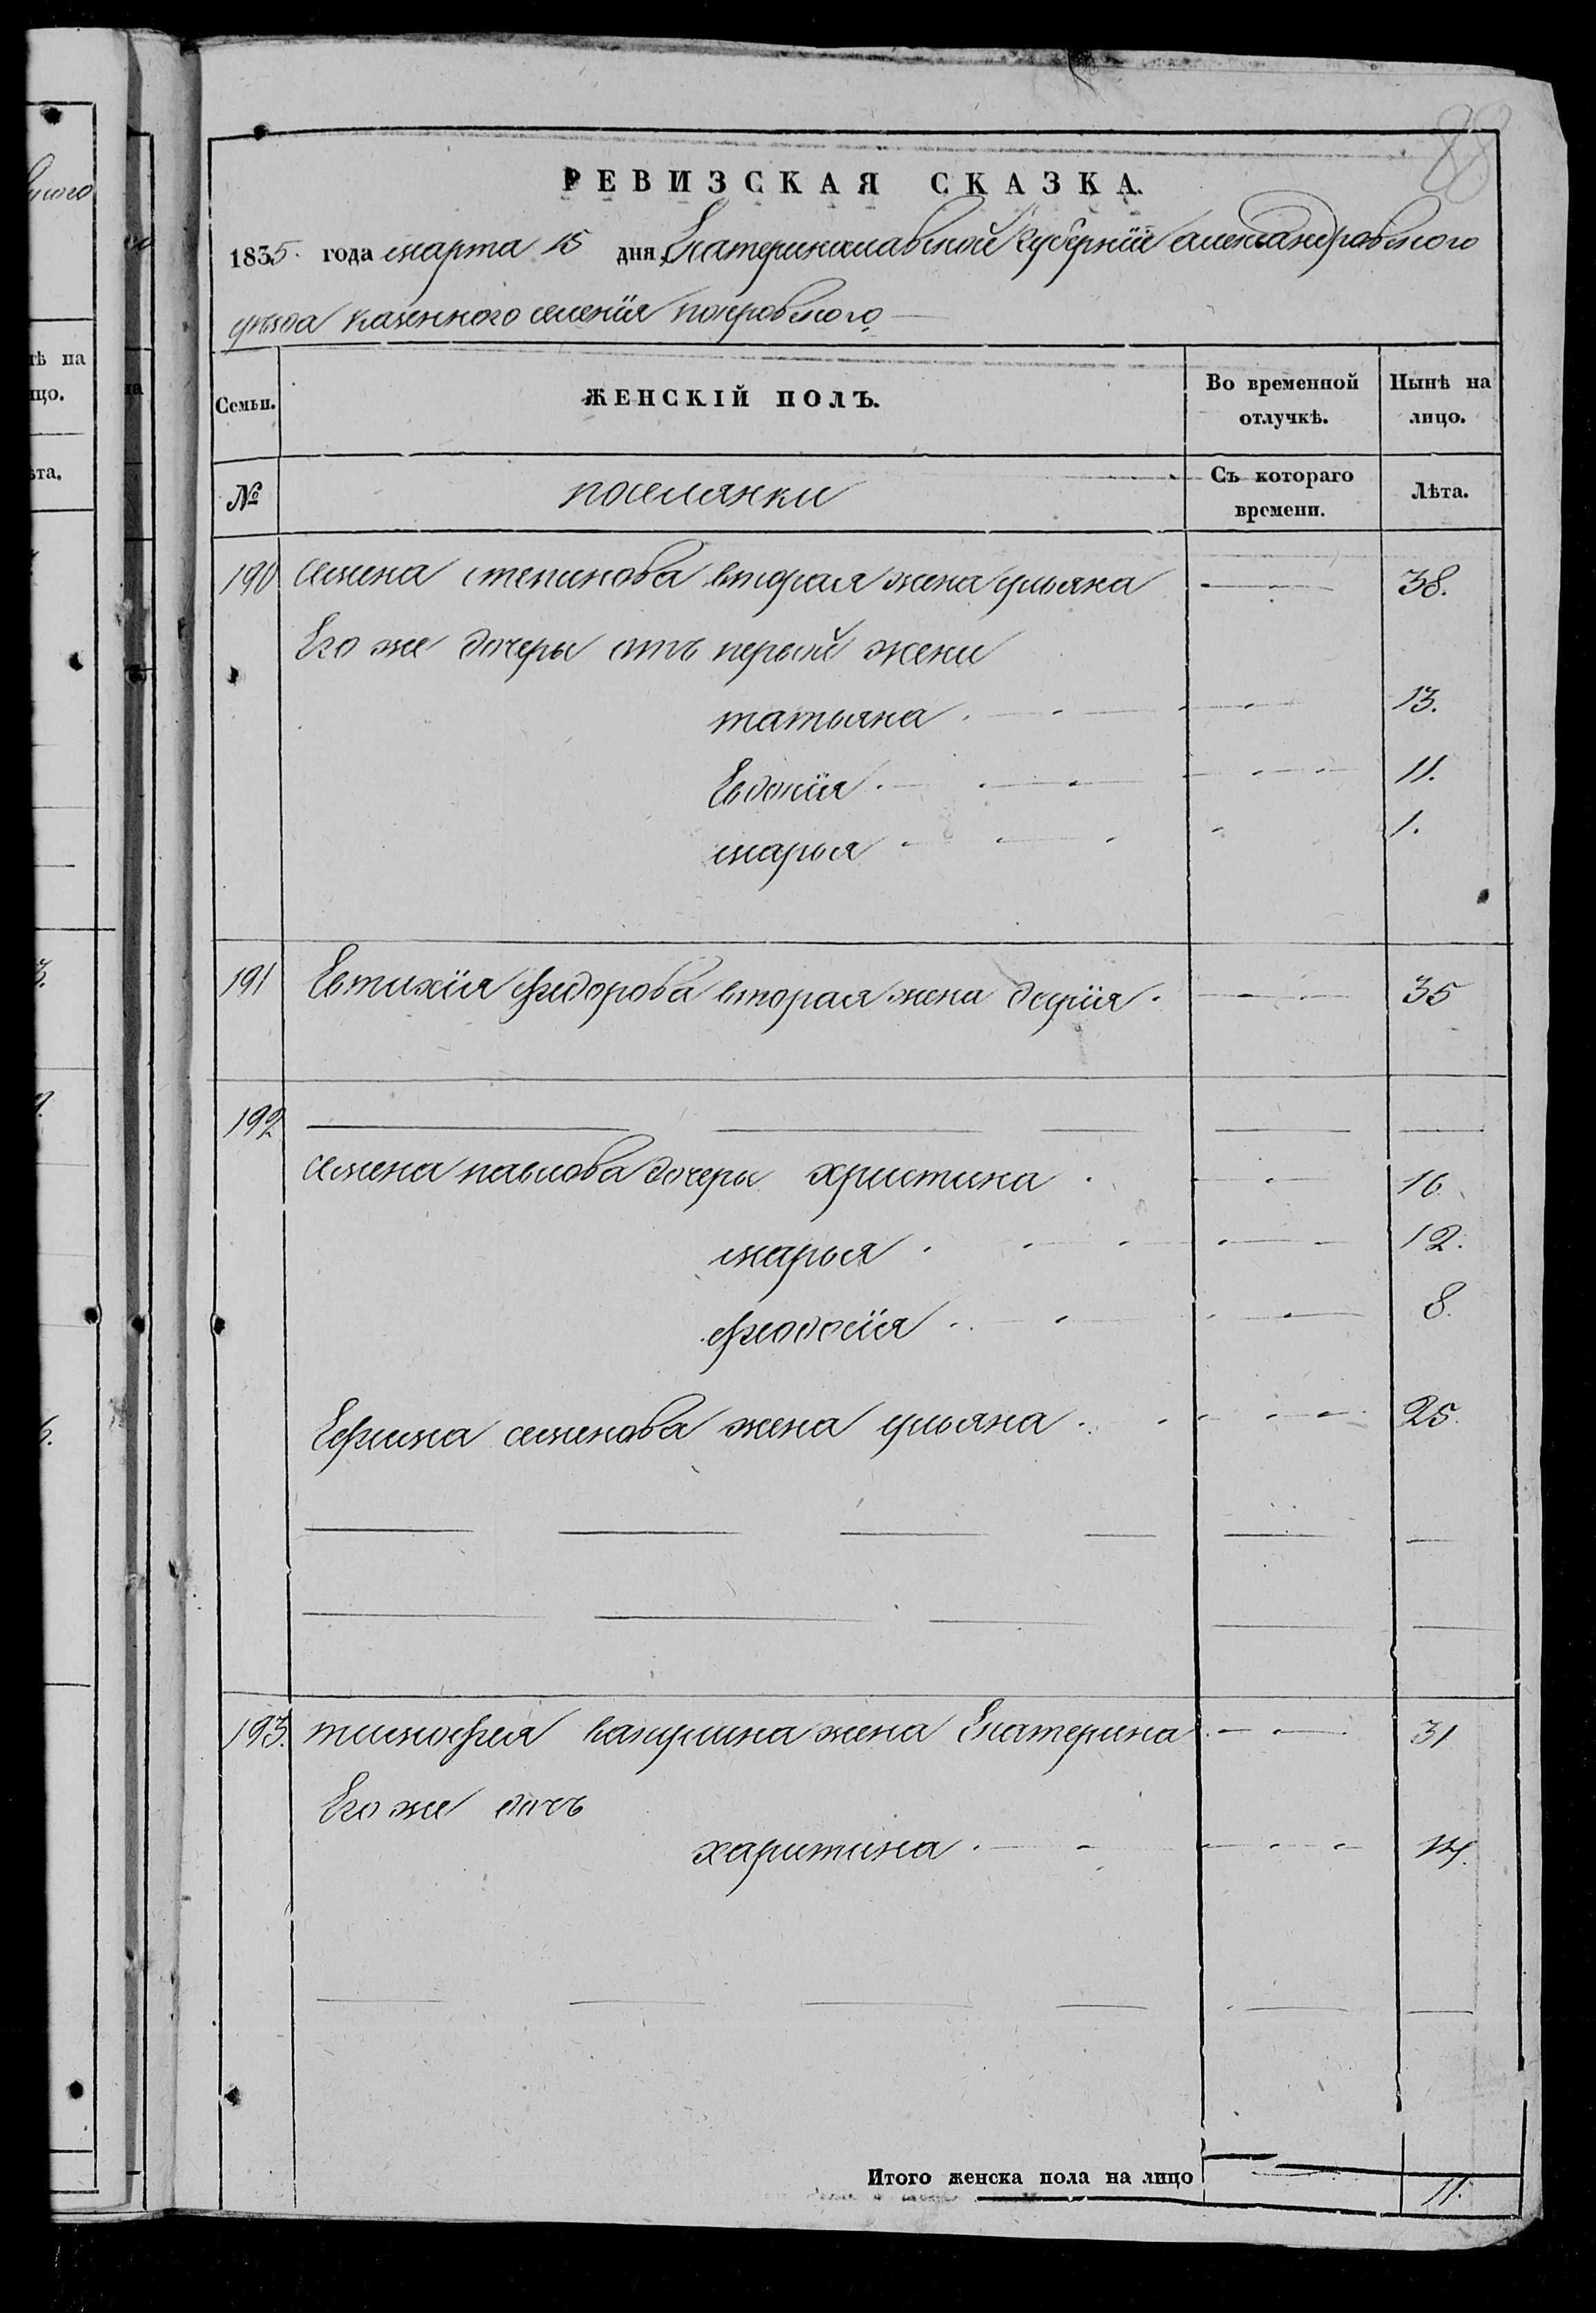 88
РЕВИЗСКАЯ СКАЗКА.
1835. года марта 15 дня Екатеринославской губернїи александровского
уезда казенного селенїя покровского
Семьи. ЖЕНСКІЙ ПОЛЪ. Во временной отлучкѣ. Нынѣ на лицо.
№ поселянки Съ котораго времени. Лѣта.
190 семена степанова вторая жена ульяна 38.
Его же дочеры отъ первой жени
татьяна 13.
Евдокїя 11.
марья 1.
191 Евтихїя федорова вторая жена дарїя 35
192
семена павлова дочеры христина 16
марья 12.
феодосїя 8.
Ефима семенова жена ульяна 25.
193. тимофея жена Екатерина 31
Его же дочь
харитина 14.
Итого женска пола на лицо 11.